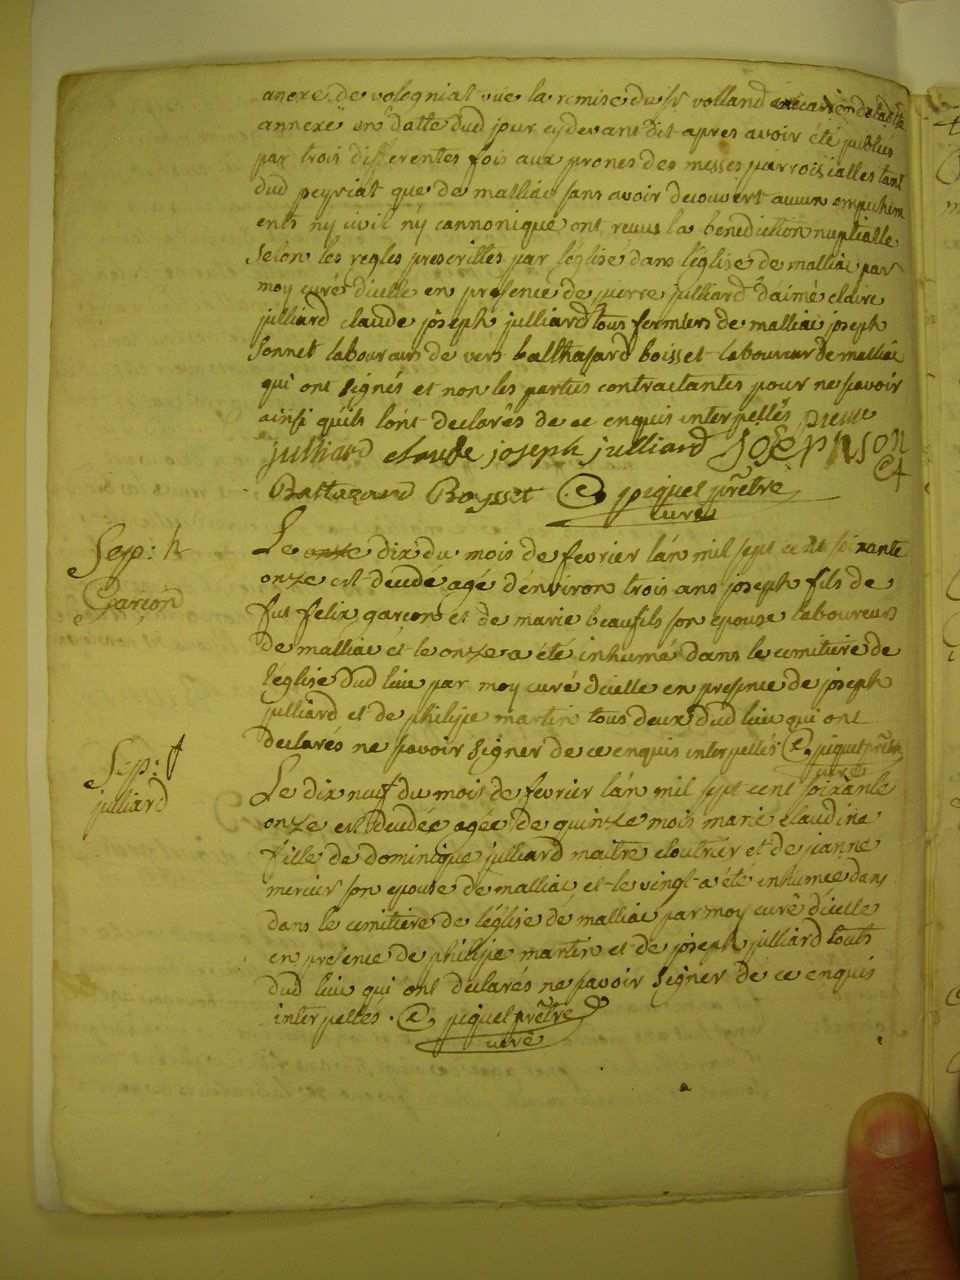 anexe de volognial vue la remise du sr volland
annexe en datte dud jour cydevant dit apres avoir été publiés
par trois differentes fois aux prones des messes parroissialles tant
dud peyriat que de malliac sans avoir decouvert aucun empechem
ents ny civil ny cannonique ont reçus la benediction nuptialle
Selon les regles prescrittes par l'église dans l'église de malliac par
moy curé dicelle en présence de pierre julliard d'aimé claire
julliard claude joseph julliard tous fermiers de malliac joseph
Sonnet laboureur de vers balthasard boisset laboureur de malliac
qui ont signés et non les parties contractantes pour ne savoir
ainsi qu'ils l'ont declarés de ce enquis interpellés pierre
julliard claude joseph julliard JOSEPH SON
et
Baltazard Boysset piquet prêtre
curé
Sep: Le onze dix du mois de fevrier l'an mil sept cent soixante
Garçon onze est decedé agé d'environ trois ans joseph fils de
fut felix garçon et de marie beaufils son epouse laboureurs
de malliac et le onze a été inhumé dans le cimitiere de
l'église dud lieu par moy curé dicelle en presence de joseph
julliard et de philipe martin tous deux dud lieu qui ont
declarés ne savoir signer de ce enquis interpellés piquet prêtre
curé
Sep: Le dix neuf du mois de fevrier l'an mil sept cent soixante
julliard onze est decedée agée de quinze mois marie claudine
fille de dominique julliard maitre cloutrier et de jeanne
mercier son epouse de malliac et le vingt a été inhumée dans
dans le cimitiere de l'église de malliac par moy curé dicelle
en présence de philipe martin et de joseph julliard touts
dud lieu qui ont declarés ne savoir signer de ce enquis
interpellés. piquet prêtre
curé